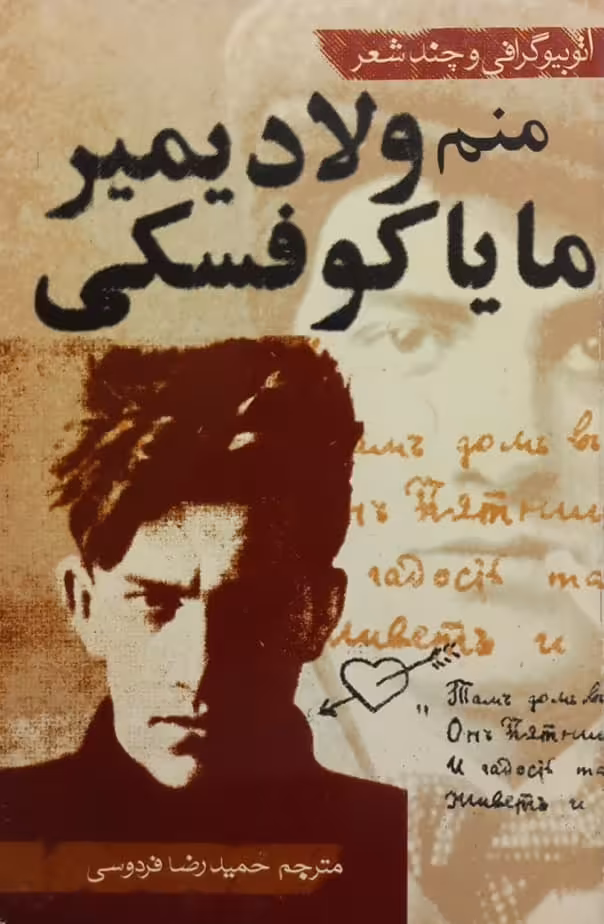 اتوبیوگرافی و چند شعر
منم ولادیمیر
مایاکوفسکی
амъ домъ въ
нъ Пятни
гадость та
ливетъ и
"Тамъ домъ въ
Онъ Пятни
И гадость та
Живетъ и
مترجم حمیدرضا فردوسی